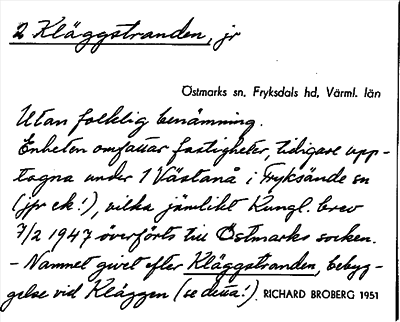 2 Kläggstranden, jr
Östmarks sn, Fryksdals hd, Värml. län
Utan folklig benämning.
Enheten omfattar fastigheter, tidigare upp-
tagna under 1 Västanå i Fryksände sn
(jfr ek!), vilka jämlikt Kungl. brev
7/2 1947 överförts till Östmarks socken.
- Namnet givet efter Kläggstranden, bebyg-
gelse vid Kläggen (se dessa!). RICHARD BROBERG 1951